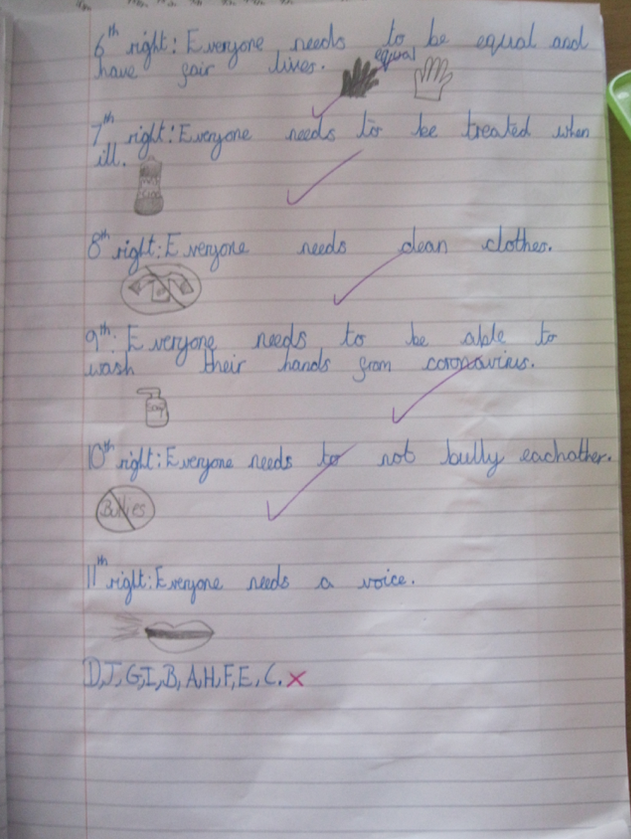 6th right: Everyone needs to be equal and
equal
have fair lives.
7th right: Everyone needs to be treated when
ill.
8th right: Everyone needs clean clothes.
9th: Everyone needs to be able to
wash their hands from coronavirus.
soap
10th right: Everyone needs to not bully eachother.
Bullies
11th right: Everyone needs a voice.
D, J, G, I, B, A, H, F, E, C. x